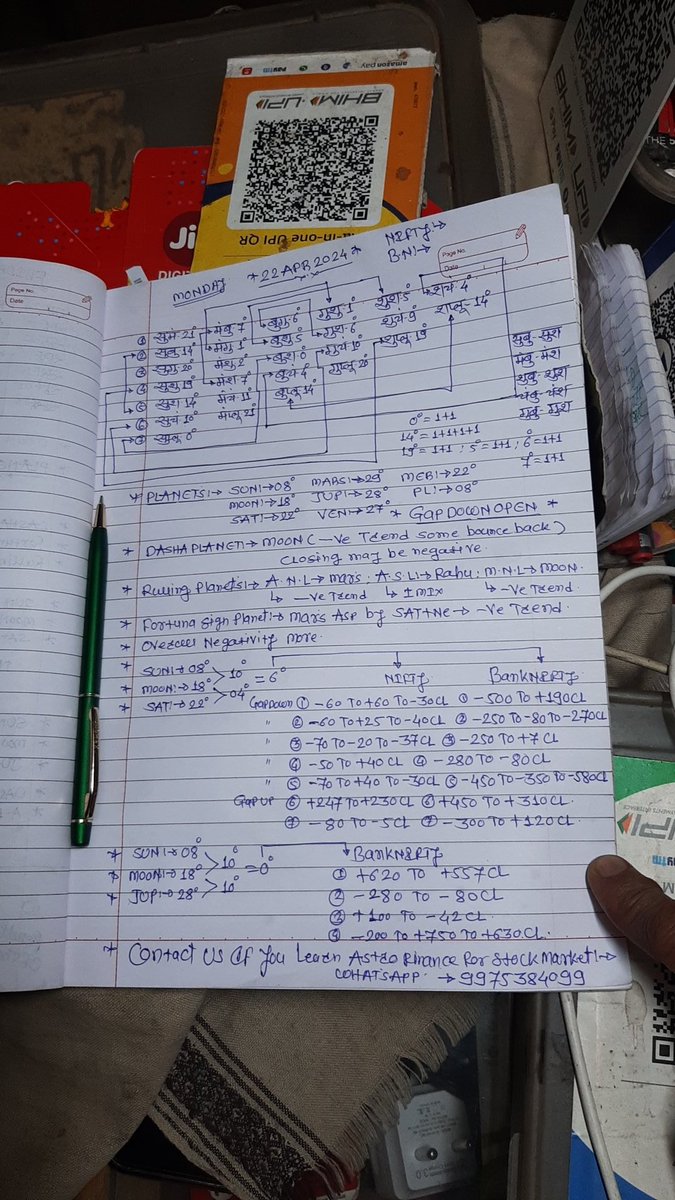 amazon pay
paytm
BHIM UPI
All-in-one UPI QR
Ji
DIGIT
Page No.
Date
Page No.
Date
NIFTY→
B.N:→
MONDAY *22 APR 2024*
① सुमं 21° मंबु 7° बुगु 6° गुशु 1° शुश 5° शचं 4°
② सुबु 14° मंगु 1° बुशु 5° गुश 6° शुचं 9° शप्लू 14°
③ सुगु 20° मंशु 2° बुश 0° गुचं 10° शुप्लू 19°
④ सुशु 19° मंश 7° बुचं 4° गुप्लू 20°
⑤ सुश 14° मंचं 11° बुप्लू 14°
⑥ सुचं 10° मंप्लू 21°
⑦ सुप्लू 0°
0° = 1+1
14° = 1+1+1+1
19° = 1+1 ; 5° = 1+1 ; 6° = 1+1
7° = 1+1
* PLANETS:→ SUN:→08° MARS:→29° MER:→22°
MOON:→18° JUP:→28° PL:→08°
SAT:→22° VEN:→27° * GAP DOWN OPEN *
* DASHA PLANET:→ MOON (-Ve Trend some bounce back)
closing may be negative
* Ruling Planets:→ A.N.L→ mars; A.S.L:→ Rahu; M.N.L→ MOON.
↳ -Ve Trend ↳ IMIX ↳ -Ve Trend.
* Fortuna Sign Planet:→ Mars Asp by SAT+Ne → -Ve Trend.
* Overall Negativity more.
* SUN:→08°
* MOON:→18° 10° = 6° NIFTY BankNIFTY
* SAT:→22° 04°
Gapdown ① -60 To +60 To -30CL ① -500 To +190CL
" ② -60 To +25 To -40CL ② -250 To -80 To -270CL
" ③ -70 To -20 To -37CL ③ -250 To +7CL
" ④ -50 To +40CL ④ -280 To -80CL
" ⑤ -70 To +40 To -30CL ⑤ -450 To -350 To -580CL
Gap UP ⑥ +247 To +230CL ⑥ +450 To +310CL.
⑦ -80 To -5CL ⑦ -300 To +120CL.
* SUN:→08°
* MOON:→18° 10° = 0° BankNIFTY
* JUP:→28° 10°
① +620 To +557CL
② -280 To -80CL
③ +100 To -42CL
④ -200 To +750 To +630CL.
* Contact us if You Learn Astro Finance for Stock Market:→
WHATSAPP. → 9975384099